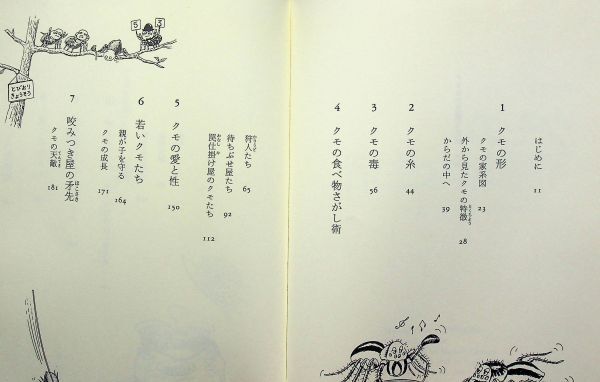 はじめに 11
1 クモの形
クモの家系図 23
外から見たクモの特徴 28
からだの中へ 39
2 クモの糸 44
3 クモの毒 56
4 クモの食べ物さがし術
狩人たち 65
待ちぶせ屋たち 92
罠仕掛け屋のクモたち 112
5 クモの愛と性 150
6 若いクモたち
親が子を守る 164
クモの成長 171
7 咬みつき屋の矛先
クモの天敵 181
5 3
とびおり
きょうそう